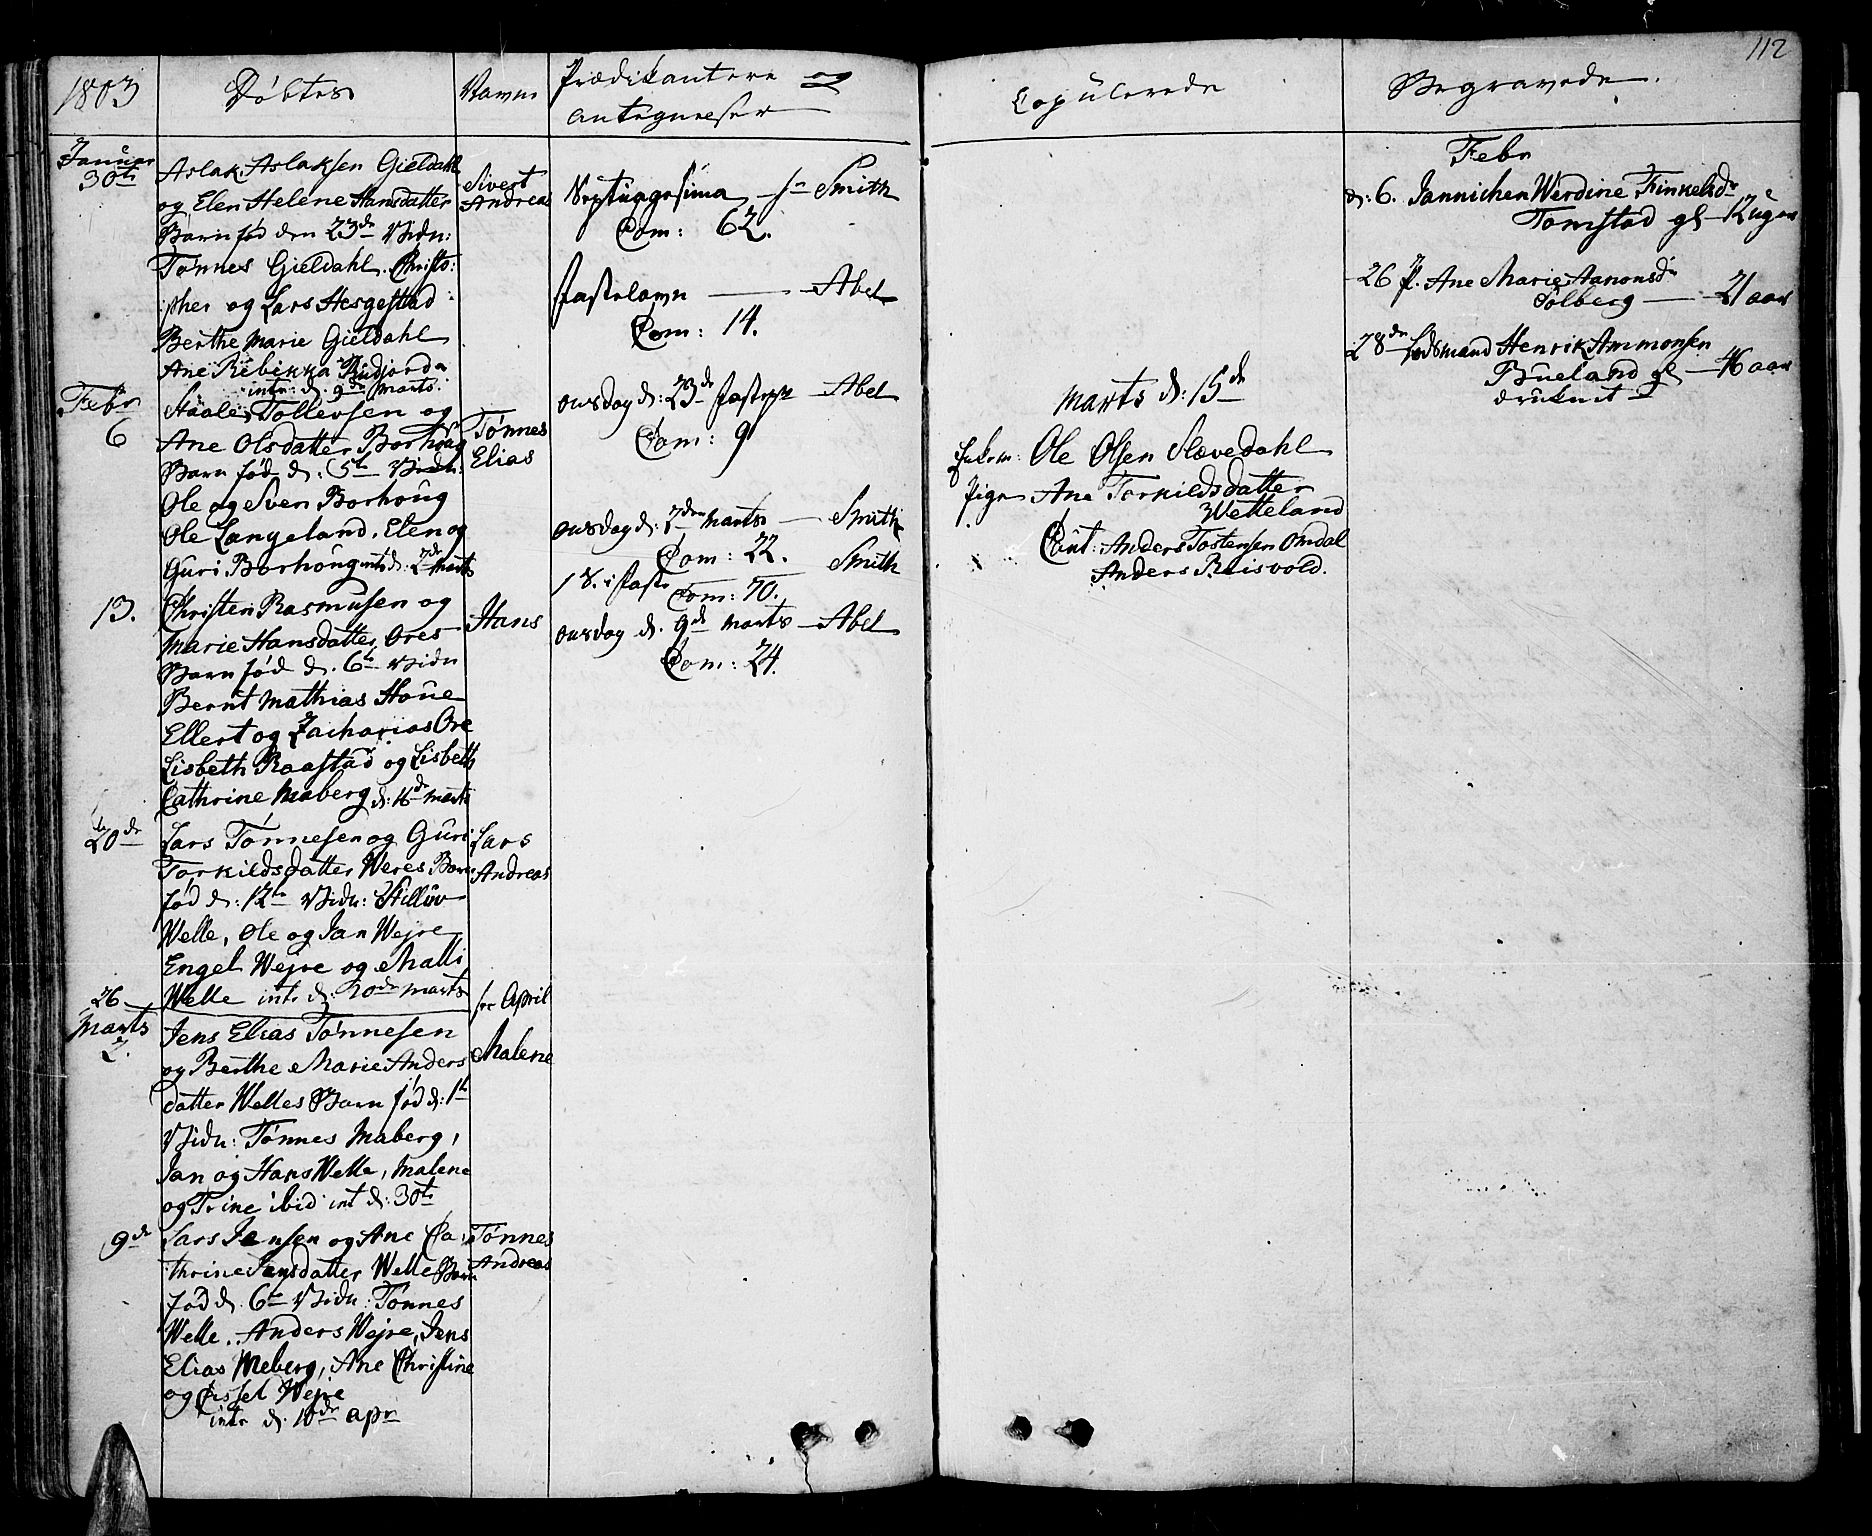 112
1803
Døbtes
Navne
Prædikantere og
antegnelser
Januar
30te
Aslak Aslaksen Gieldahl
og Elen Helene Hansdatter
Barn fød den 23de Vidn:
Tønnes Gieldahl. Christo:
pher og Lars Hesgestad
Berthe Marie Gieldahl
Ane Rebekka Rudjord
intr: d. 9de Marts
Sivert
Andreas
Febr
6
Staale Tollevsen og
Ane Olsdatter Borhoug
Barn fød d. 5te Vidn:
Ole og Sven Borhoug
Ole Langeland, Elen og
Guri Borhoug int d: 2de Marts
Tønnes
Elias
13.
Christen Rasmusen og
Marie Hansdatter Ores
Barn fød d. 6te Vidn
Bernt Mathias Houe
Ellert og Zacharias Ore
Lisbeth Raastad og Lisbeth
Cathrine Maberg d: 16de Marts
Hans
20de
Lars Tønnesen og Guri
Torkildsdatter Weres Barn
fød d: 12te Vidn:
Welle, Ole og Jan Wejre
Engel Wejre og Malli
Welle int. d: 20de Marts
Lars
Andreas
26
Marts
2.
Jens Elias Tønnesen
og Berthe Marie Anders
datter Welles Barn fød d: 1te
Vidn: Tønnes Maberg,
Jan og Hans Welle, Malene
og Trine ibid int d: 30te
April
Malene
9de
Lars Jensen og Ane Ca:
thrine Jensdatter Welle Barn
fød d. 6te Vidn: Tønnes
Welle. Anders Wejre, Jens
Elias Meberg, Ane Christine
og Sissel Wejre
intr d. 10de apr
Tønnes
Andreas
Septuagesima Hr Smith
Com: 62.
Fastelavn — Abel
Com: 14.
onsdag d: 23de Fastepr — Abel
Com: 9
onsdag d: 2den Marts — Smith
Com: 22.
1 S. i Faste Smith
Com: 70.
onsdag d. 9de Marts — Abel
Com: 24.
Copulerede
Marts d: 15de
Ole Olsen Slævedahl
Pige Ane Torkildsdatter
Wetteland
Caut: Anders Tostensen Omdal
Anders Reisvold.
Begravede.
Febr
d: 6. Jannichen Werdine Finkelsdr
Tomstad gl — 12 uger
26 Ane Marie Aanonsdr
Solberg — 21 aar
28de Lodsmand Henrik Ammonsen
Bueland gl — 46 aar
druknet